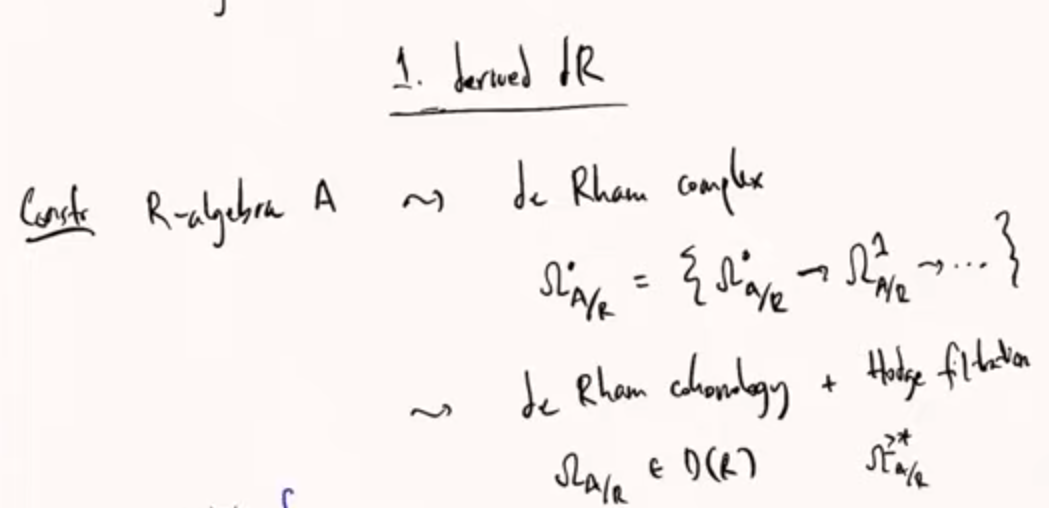 1. derived dR
Constr R-algebra A ⇝ de Rham complex
Ω^•_{A/R} = { Ω^0_{A/R} → Ω^1_{A/R} → ... }
⇝ de Rham cohomology + Hodge filtration
Ω_{A/R} ∈ D(R) Ω^{≥*}_{A/R}